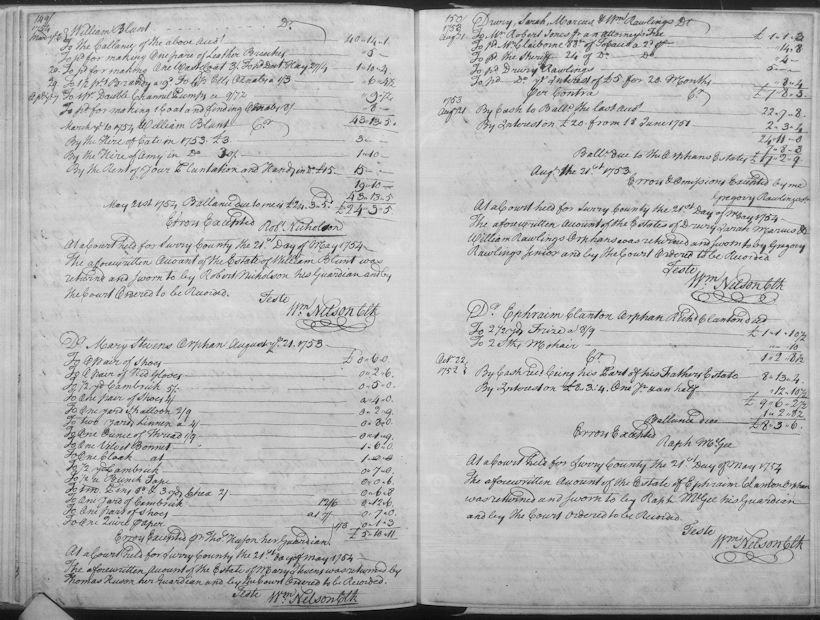 149
1754
William Blunt Dr
To the Ballance of the above Acct 40-14-1
To pd for making One pare of Leather Breeches -5-
To pd for making One Wast Coat
9-7½
To pd for making a Coat and finding 8-
43-13-5
March 1754 William Blunt Cr
By the Hire of Cate in 1753 £3 3-
By the Hire of Amy in Do 30/ 1-10-
By the Rent of Your Plantation and Hands in Do £15 15-
19-10-
43-13-5
May 21st 1754 Ballance due to me is £24.3.5 £24-3-5
Errors Excepted Robt Nicholson
At a Court held for Surry County the 21st Day of May 1754
The aforewritten Account of the Estate of William Blunt was
returnd and sworn to by Robert Nicholson his Guardian and by
the Court Ordered to be Recorded.
Teste
Wm Nelson Clk
Dr Mary Stevens Orphan August ye 21. 1753
To A pair of Shoes £ 0-6-0
To A pair of Kid Gloves 0-2-6
To 1/2 yd Cambrick 5/ 0-5-0
To One pair of Shoes 4/ 0-4-0
To One yard Shalloon 2/9 0-2-9
To two yards Linnen a 4/
To One Ounce of Thread 1/9 0-1-9
To One Velvet Bonnet 1-6-0
To One Cloak at
To 1/2 yd Cambrick 0-7-0
To 1/2 a Bunch Tape 0-0-6
0-6-8
To One Yard of Cambrick 12/6 0-12-6
To One pair of Shoes at 7/ 0-7-0
To One Quire Paper 1/3 0-1-3
Errors Excepted pr Thos Huson her Guardian £5-10-11
At a Court held for Surry County the 21st day of May 1754
The aforewritten Account of the Estate of Mary Stevens was returned by
Thomas Huson her Guardian and by the Court Ordered to be Recorded.
Teste Wm Nelson Clk
150
1753
Augt 21
Drury, Sarah, Marcus & Wm Rawlings Dr
To Mr Robert Jones Jr an attorneys Fee £1-1-3
To pd Mr Claiborne 88lb of Tobacco a 2d 14.8
To pd the Sheriff 24 of Do Do -4-
To pd Drury Rawlings 5--
To pd Do Interest of £5 for 20 Months -8-4
£7-8-3
Per Contra Cr
1753
Augt 21
By Cash to Ballce the last Acct 22-7-8
By Interest on £20 from 18 June 1751 2-3-4
24-11-0
7-8-3
Ballce due to the Orphans Estate £17-2-9
Augt the 21st 1753
Errors & Omissions Excepted by me
Gregory Rawlings
At a Court held for Surry County the 21st Day of May 1754
The aforewritten Account of the Estates of Drury, Sarah, Marcus &
William Rawlings Orphans was returned and sworn to by Gregory
Rawlings Junior and by the Court Ordered to be Recorded
Teste
Wm Nelson Clk
Dr Ephraim Clanton Orphan Richd Clanton Dr
To 2 1/2 yd Frize a 8/9 £1-1-10½
To 2 Sks Mohair -10
1-2-8½
Cr
Octr 22
1752
By Cash recd being his Part of his Fathers Estate 8-13-4
By Interest on £8.3.4. One Year an half -12-10½
£9-6-2½
1-2-8½
Ballance due £8-3-6
Errors Excepted
Raph McGee
At a Court held for Surry County the 21st Day of May 1754
The aforewritten Account of the Estate of Ephraim Clanton Orphan
was returned and sworn to by Raph McGee his Guardian
and by the Court Ordered to be Recorded
Teste
Wm Nelson Clk